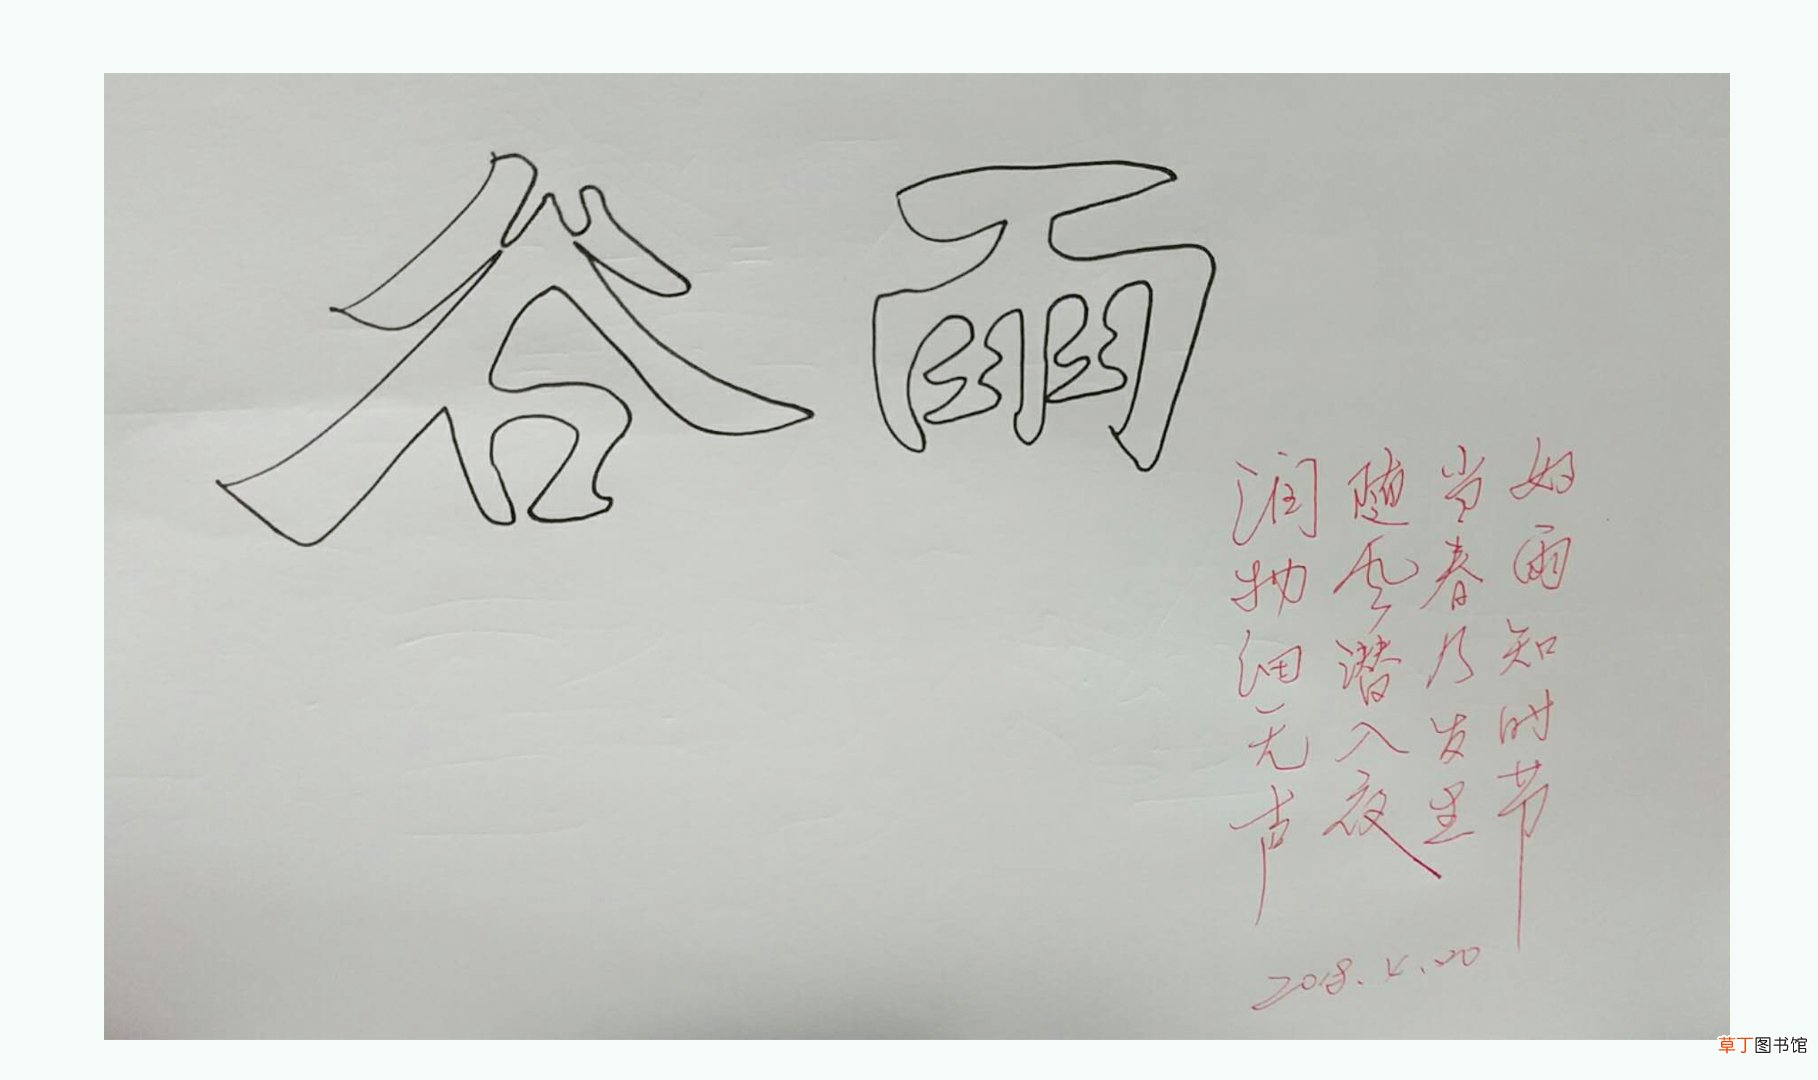 谷雨
好雨知时节
当春乃发生
随风潜入夜
润物细无声
2018.4.20
草丁图书馆